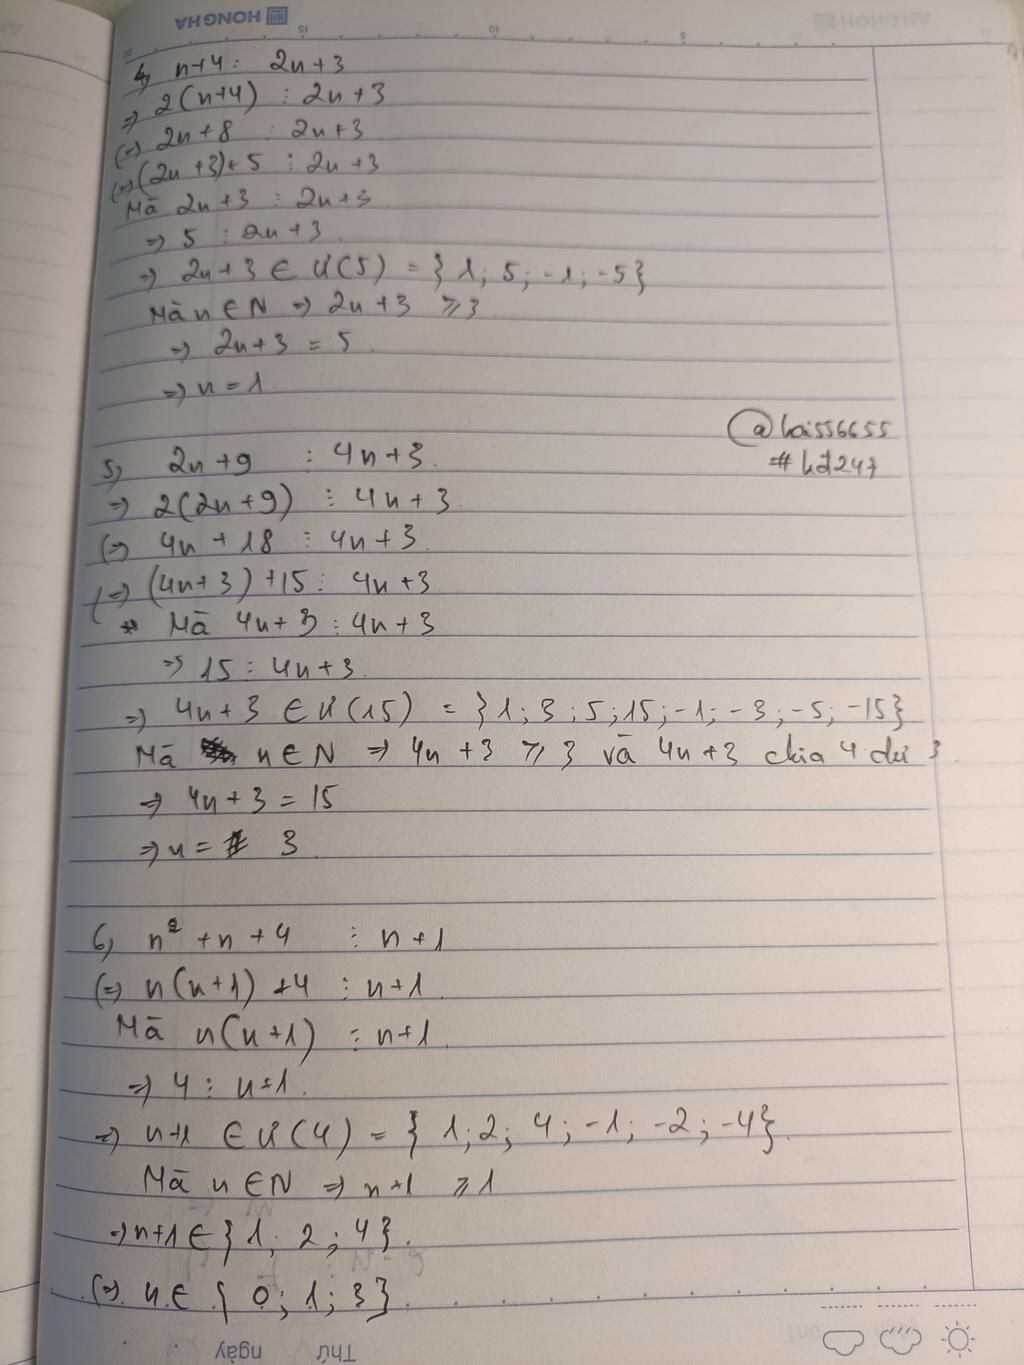 HONG HA
4, n+4 ⋮ 2n+3
=> 2(n+4) ⋮ 2n+3
(=) 2n+8 ⋮ 2n+3
(=) (2n+3)+5 ⋮ 2n+3
Mà 2n+3 ⋮ 2n+3
=> 5 ⋮ 2n+3.
=> 2n+3 ∈ Ư(5) = {1; 5; -1; -5}
Mà n∈N => 2n+3 ⩾ 3
=> 2n+3 = 5
=> n = 1
@hoi556655
#hd247
5, 2n+9 ⋮ 4n+3.
=> 2(2n+9) ⋮ 4n+3
(=) 4n+18 ⋮ 4n+3
(=) (4n+3)+15 ⋮ 4n+3
Mà 4n+3 ⋮ 4n+3
=> 15 ⋮ 4n+3.
=> 4n+3 ∈ Ư(15) = {1; 3; 5; 15; -1; -3; -5; -15}
Mà n∈N => 4n+3 ⩾ 3 và 4n+3 chia 4 dư 3.
=> 4n+3 = 15
=> n = 3
6, n² +n+4 ⋮ n+1
(=) n(n+1) +4 ⋮ n+1
Mà n(n+1) ⋮ n+1.
=> 4 ⋮ n+1.
=> n+1 ∈ Ư(4) = {1; 2; 4; -1; -2; -4}.
Mà n∈N => n+1 ⩾ 1
=> n+1 ∈ {1; 2; 4}.
(=) n ∈ {0; 1; 3}
Thứ
ngày